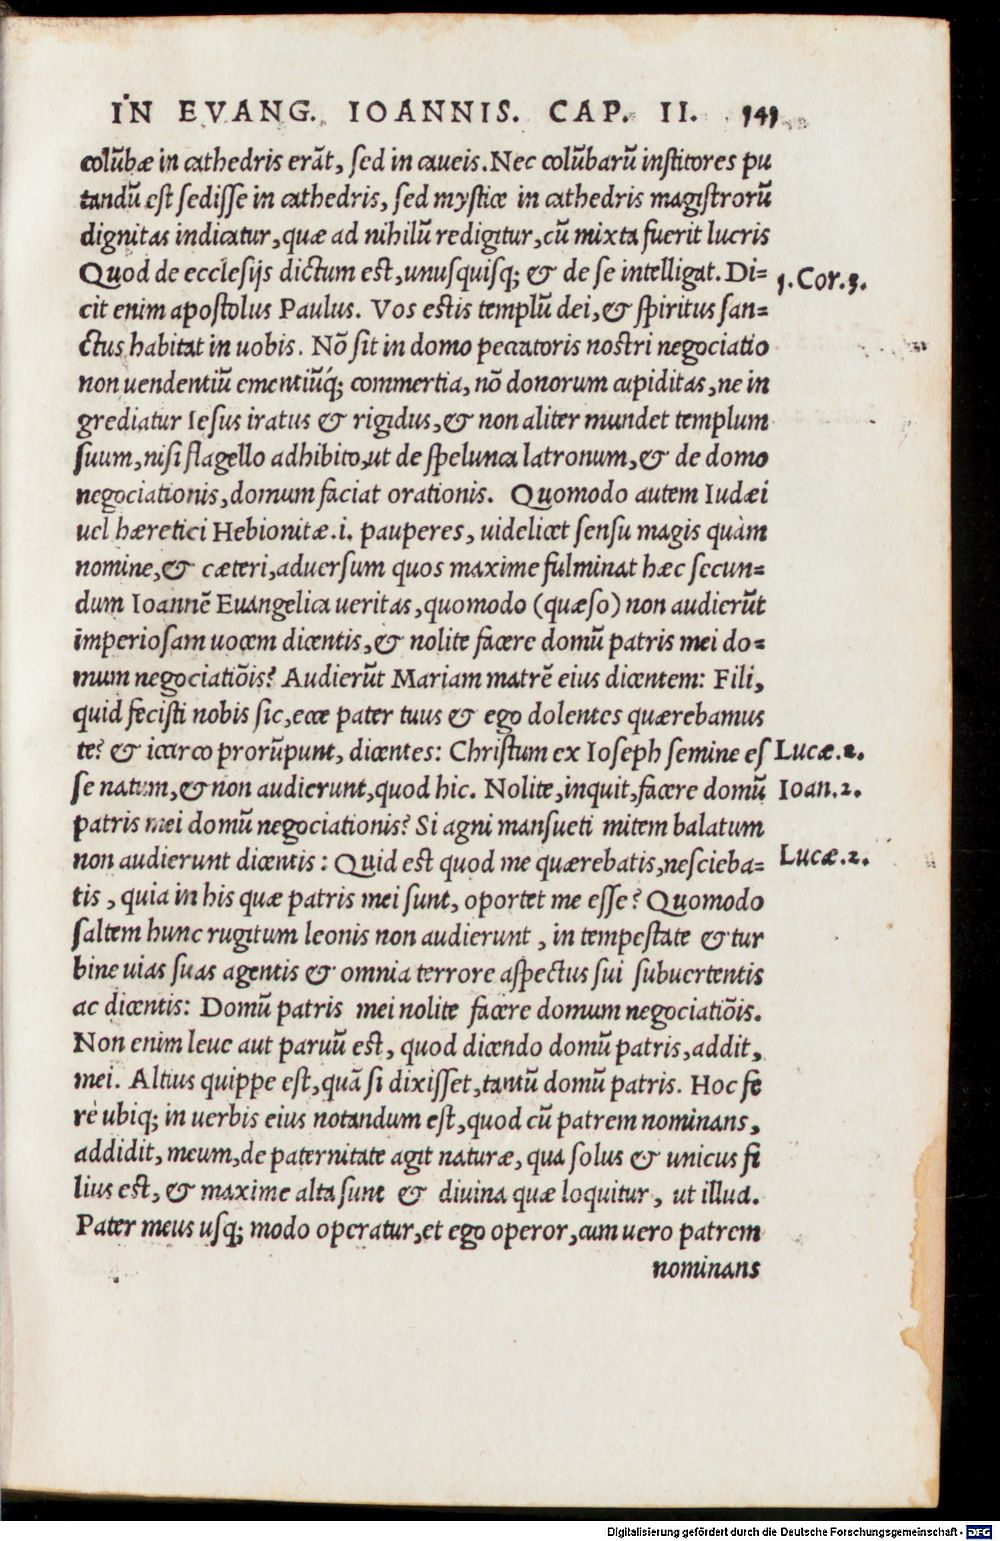 IN EVANG. IOANNIS. CAP. II. 141
colūbæ in cathedris erāt, sed in caueis. Nec colūbarū institores pu
tandū est sedisse in cathedris, sed mysticæ in cathedris magistrorū
dignitas indicatur, quæ ad nihilū redigitur, cū mixta fuerit lucris
Quod de ecclesijs dictum est, unusquisq; & de se intelligat. Di=
1. Cor. 3.
cit enim apostolus Paulus. Vos estis templū dei, & spiritus san=
ctus habitat in uobis. Nō sit in domo peccatoris nostri negociatio
non uendentiū ementiūq́; commertia, nō donorum cupiditas, ne in
grediatur Iesus iratus & rigidus, & non aliter mundet templum
suum, nisi flagello adhibito, ut de spelunca latronum, & de domo
negociationis, domum faciat orationis. Quomodo autem Iudæi
uel hæretici Hebionitæ .i. pauperes, uidelicet sensu magis quàm
nomine, & cæteri, aduersum quos maxime fulminat hæc secun=
dum Ioannē Euangelica ueritas, quomodo (quæso) non audierūt
imperiosam uocem dicentis, & nolite facere domū patris mei do=
mum negociatiōis? Audierūt Mariam matrē eius dicentem: Fili,
quid fecisti nobis sic, ecce pater tuus & ego dolentes quærebamus
te? & icarco prorūpunt, dicentes: Christum ex Ioseph semine es
Lucæ. 2.
se natum, & non audierunt, quod hic. Nolite, inquit, facere domū
Ioan. 2.
patris mei domū negociationis? Si agni mansueti mitem balatum
non audierunt dicentis: Quid est quod me quærebatis, nescieba=
Lucæ. 2.
tis, quia in his quæ patris mei sunt, oportet me esse? Quomodo
saltem hunc rugitum leonis non audierunt, in tempestate & tur
bine uias suas agentis & omnia terrore aspectus sui subuertentis
ac dicentis: Domū patris mei nolite facere domum negociatiōis.
Non enim leue aut paruū est, quod dicendo domū patris, addit,
mei. Altius quippe est, quā si dixisset, tantū domū patris. Hoc fe
rè ubiq; in uerbis eius notandum est, quod cū patrem nominans,
addidit, meum, de paternitate agit naturæ, qua solus & unicus fi
lius est, & maxime alta sunt & diuina quæ loquitur, ut illud.
Pater meus usq; modo operatur, et ego operor, cum uero patrem
nominans
Digitalisierung gefördert durch die Deutsche Forschungsgemeinschaft - DFG